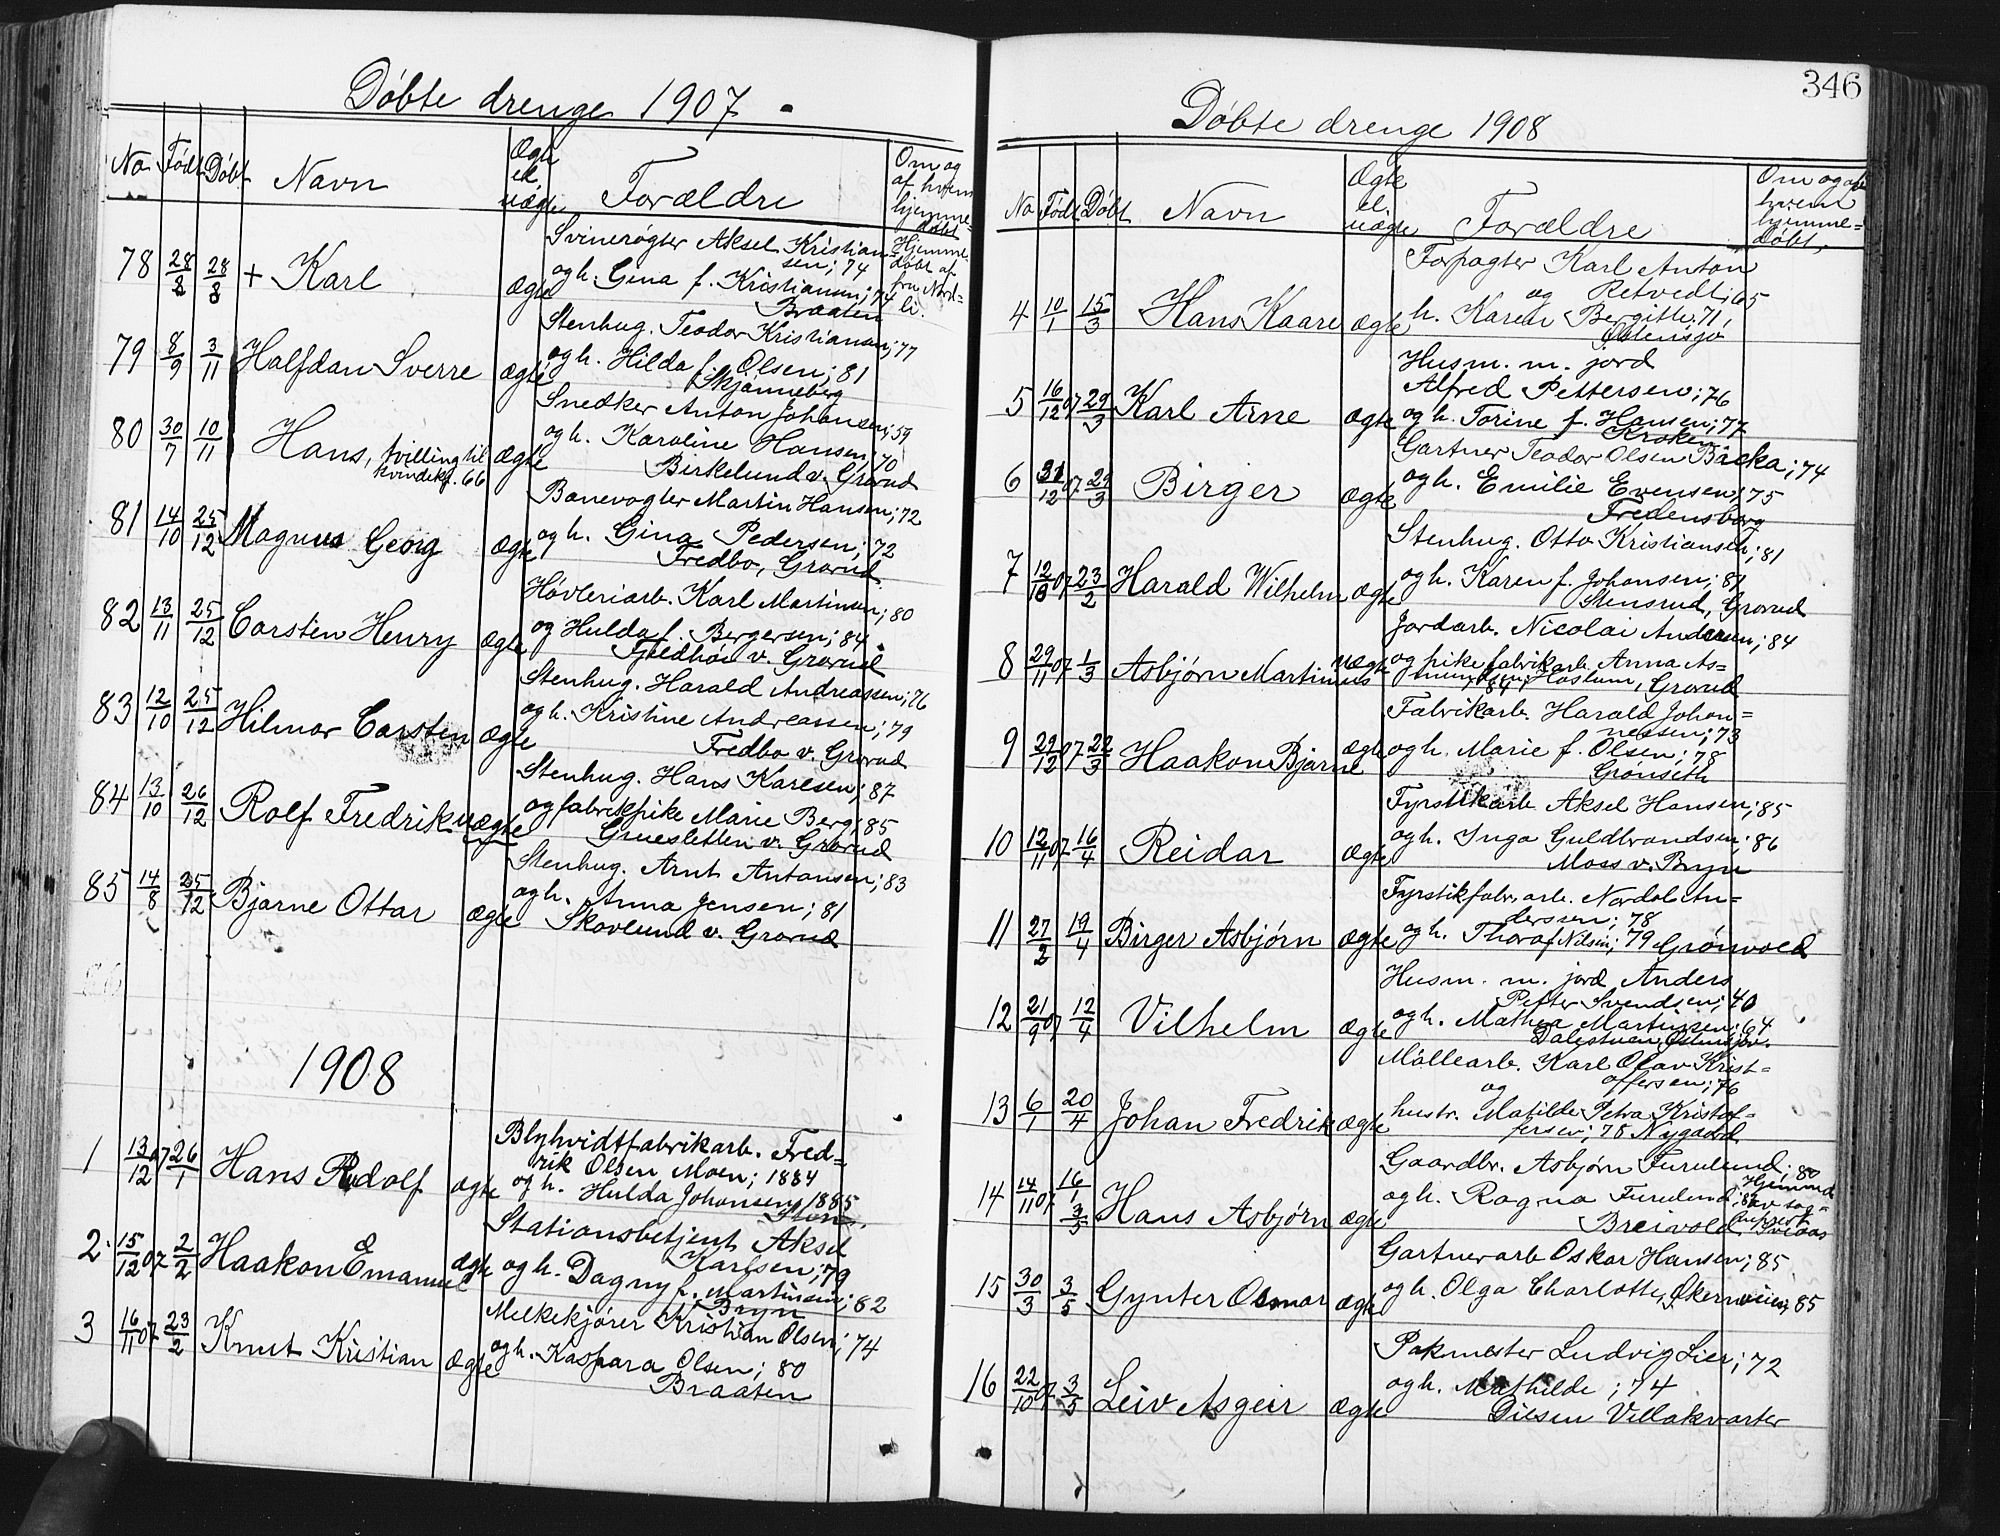 Døbte drenge 1907.
No Født Døbt Navn Ægte el. uægte Forældre Om og af hvem hjemmedøbt
78 28/8 28/8 + Karl ægte Svinerøgter Aksel Kristian=
sen; 74
og h. Gina f. Kristiansen; 74
Braaten
Hjemme=
døbt af
fru Nord=
li.
79 8/9 3/11 Halfdan Sverre ægte Stenhug. Teodor Kristiansen; 77
og h. Hilda f. Olsen; 81
Skjønneberg
80 30/7 10/11 Hans, tvilling til
kvindekj. 66 ægte Snedker Anton Johansen; 59
og h. Karoline Hansen, 70
Birkelund v. Grorud
81 14/10 25/12 Magnus Georg ægte Banevogter Martin Hansen; 72
og h. Gina Pedersen; 72
Fredbo, Grorud
82 13/11 25/12 Carsten Henry ægte Høvleriarb. Karl Martinsen; 80
og Hulda f. Bergersen; 84
v. Grorud
83 12/10 25/12 Hilmar Carsten ægte Stenhug. Harald Andreassen; 76
og h. Kristine Andreassen; 79
Fredbo v. Grorud
84 13/10 26/12 Rolf Fredrik uægte Stenhug. Hans Karlsen; 87
og fabrikpike Marie Berg; 85
Gruesletten v. Grorud
85 14/8 25/12 Bjarne Ottar ægte Stenhug. Arnt Antonsen; 83
og h. Anna Jensen; 81
Skovlund v. Grorud
1908
1 13/12 07 26/1 Hans Rudolf ægte Blyhvidtfabrikarb. Fred=
rik Olsen Moen; 1884
og h. Hulda Johansen; 1885
2 15/12 07 2/2 Haakon Emanuel ægte Stationsbetjent Aksel
Karlsen; 79
og h. Dagny f. Martinsen; 82
Bryn
3 16/11 07 23/2 Knut Kristian ægte Melkekjører Kristian Olsen; 74
og h. Kaspara Olsen; 80
Braaten
346
Døbte drenge 1908
No Født Døbt Navn Ægte el. uægte Forældre Om og af hvem hjemme=døbt,
4 10/1 15/3 Hans Kaare ægte Forpagter Karl Anton
og Retvedt; 65
h. Karen Bergitte; 71,
Østensjø
5 16/12 07 29/3 Karl Arne ægte Husm. m. jord
Alfred Pettersen; 76
og h. Torine f. Hansen; 77
Kroken
6 31/12 07 29/3 Birger ægte Gartner Teodor Olsen Backa; 74
og h. Emilie Evensen; 75
Fredensborg
7 12/10 07 23/2 Harald Wilhelm ægte Stenhug. Otto Kristiansen; 81
og h. Karen f. Johansen; 81
Stensrud, Grorud
8 29/11 07 1/3 Asbjørn Martinius uægte Jordarb. Nicolai Andersen; 84
og pike fabrikarb. Anna As=
mundsen; 84; Haslum, Grorud
9 29/12 07 22/3 Haakon Bjarne ægte Fabrikarb. Harald Johan=
nessen; 73
og h. Marie f. Olsen; 78
Grønseth
10 12/11 07 16/4 Reidar ægte Fyrstikarb. Aksel Hansen; 85
og h. Inga Guldbrandsen; 86
Moss v. Bryn
11 27/2 19/4 Birger Asbjørn ægte Fyrstikfabr. arb. Nordal An=
derssen; 78
og h. Thora f Nilsen; 79 Grønvold
12 21/9 07 12/4 Vilhelm ægte Husm. m. jord Anders
Petter Svendsen; 40
og h. Mathea Martinsen; 64
Dalestuen, Østensjøv.
13 6/1 20/4 Johan Fredrik ægte Møllearb. Karl Olav Krist=
og offersen; 76
hustr. Matilde Petra Kristof=
fersen; 78 Nygaard
14 14/11 07 16/1 3/5 Hans Asbjørn ægte Gaardbr. Asbjørn Furulund; 80
og h. Ragna Furulund; 82
Breivold
Hjemmed.
av sog=
neprest
15 30/3 3/5 Gynter Osmar ægte Gartnerarb Oskar Hansen; 85
og h. Olga Charlotte, Økernveien; 85
16 22/10 07 3/5 Leiv Asgeir ægte Pakmester Ludvig Lier; 72
og h. Mathilde; 74
Disen Villakvarter